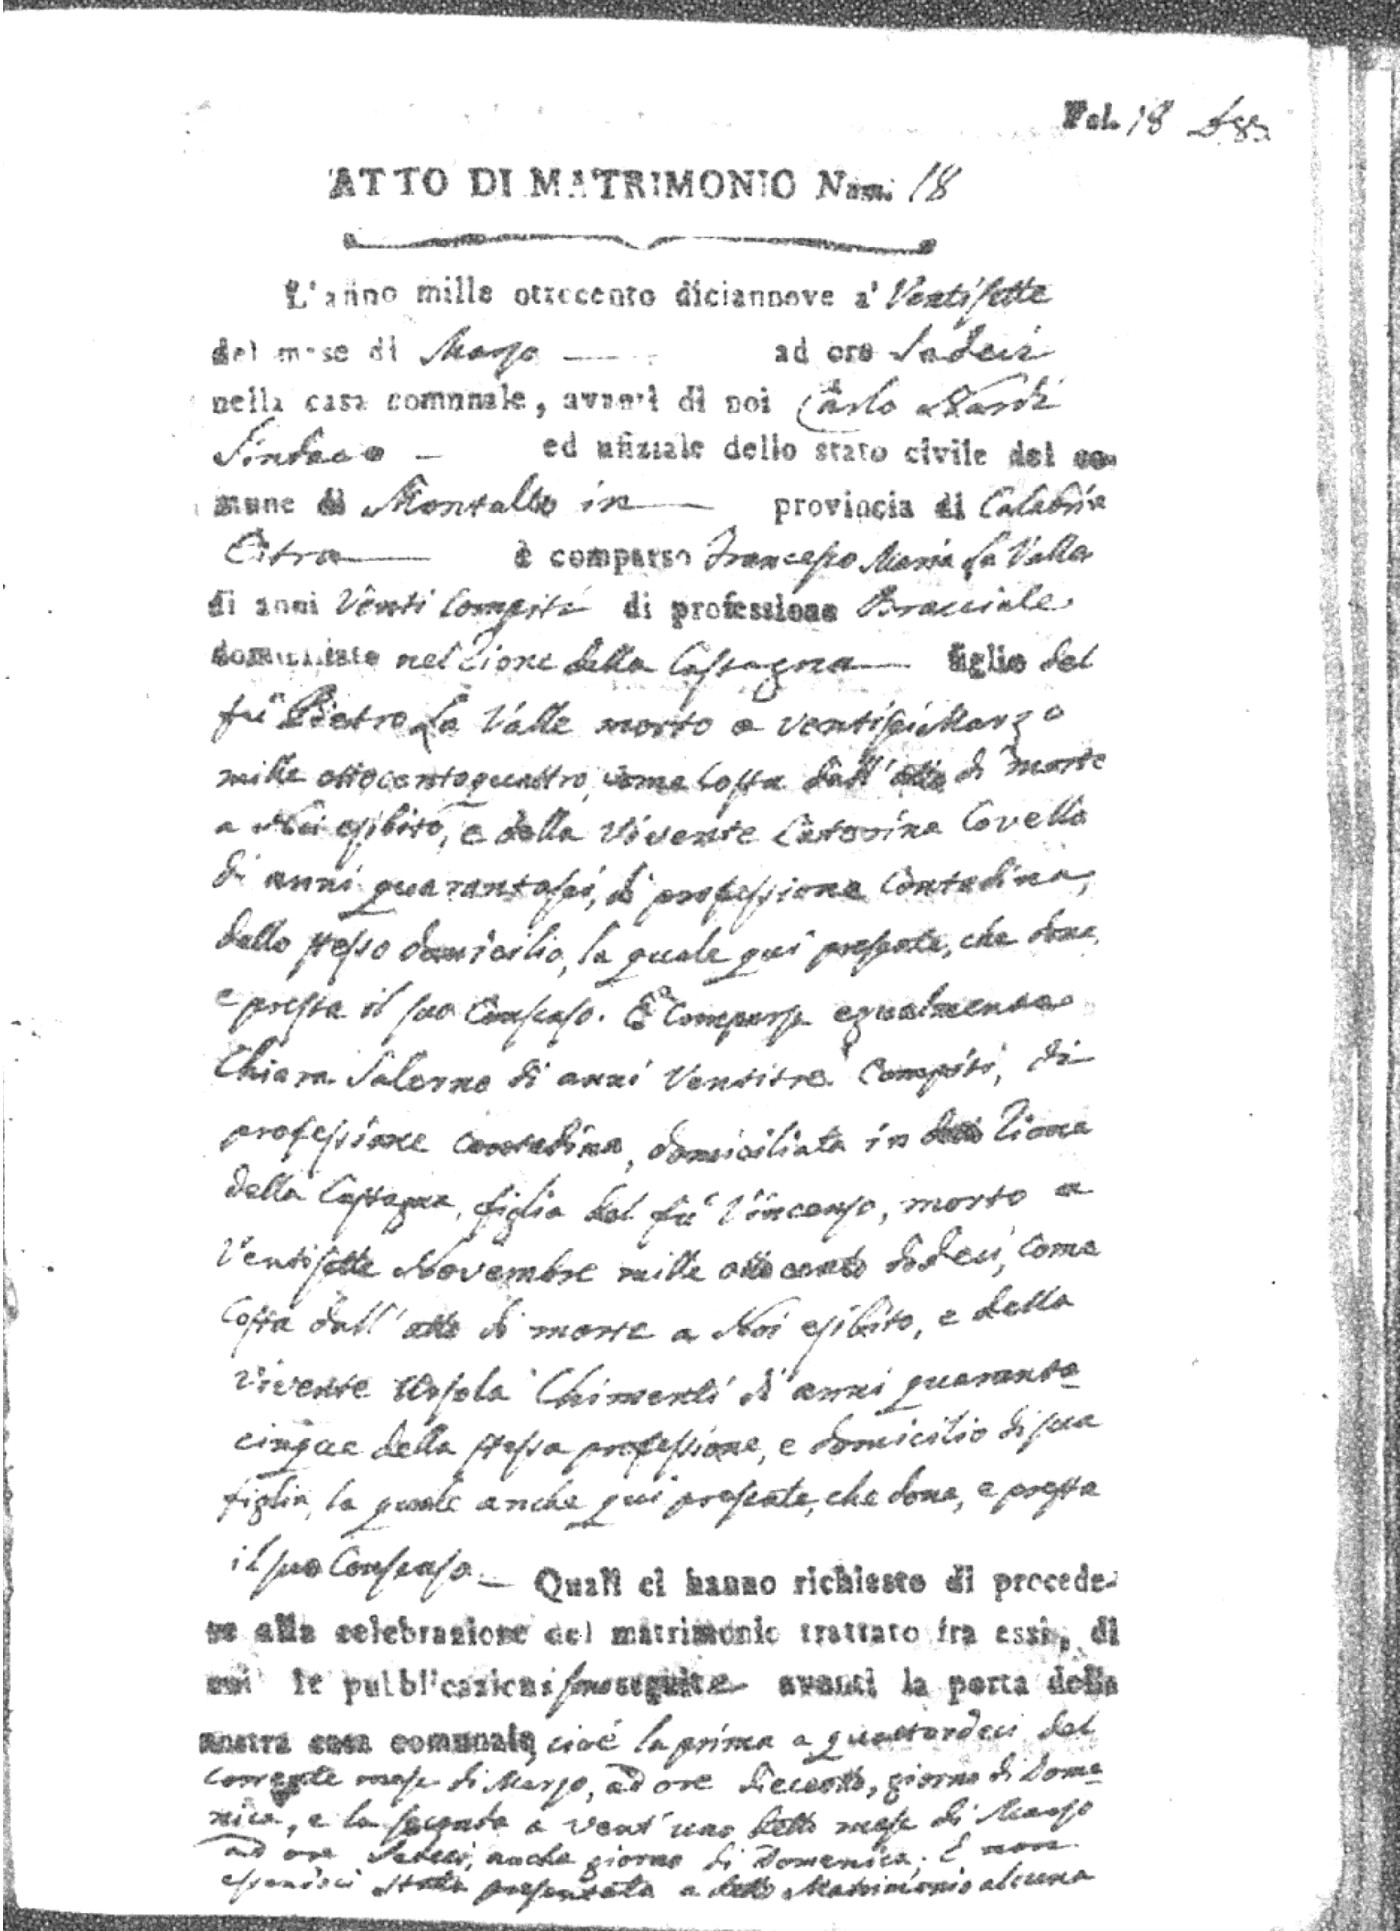 Fol. 18
ATTO DI MATRIMONIO Num. 18
L'anno mille ottocento diciannove a' Ventisette
del mese di Marzo ad ore Sedeci
nella casa comunale, avanti di noi Carlo Nardi
Sindaco ed ufiziale dello stato civile del co-
mune di Montalto in provincia di Calabria
Citra è comparso Francesco Maria La Valle
di anni Venti compiti di professione Bracciale
domiciliato nel Rione della Castagna figlio del
fu Pietro La Valle morto a ventisei Marzo
mille ottocentoquattro, come costa dall'atto di morte
a Noi esibito, e della vivente Catterina Covello
di anni quarantasei, di professione Contadina,
dello stesso domicilio, la quale qui presente, che dona,
e presta il suo Consenso. E' Comparsa egualmente
Chiara Salerno di anni Ventitre compiti, di
professione contadina, domiciliata in detto Rione
della Castagna, figlia del fu Vincenzo, morto a
Ventisette Novembre mille ottocento dodeci, come
costa dall'atto di morte a Noi esibito, e della
vivente Orsola Chimenti di anni quaranta-
cinque della stessa professione, e domicilio di sua
figlia, la quale anche qui presente, che dona, e presta
il suo Consenso. Quali ci hanno richiesto di procede-
re alla celebrazione del matrimonio trattato fra essi, di
cui le pubblicazioni sono seguite avanti la porta della
nostra casa comunale, cioè la prima a quattordeci del
corrente mese di Marzo, ad ore diecotto, giorno di Dome-
nica, e la seconda a vent'uno detto mese di Marzo
ad ore Sedeci, anche giorno di Domenica. E non
essendoci stata presentata a detto Matrimonio alcuna